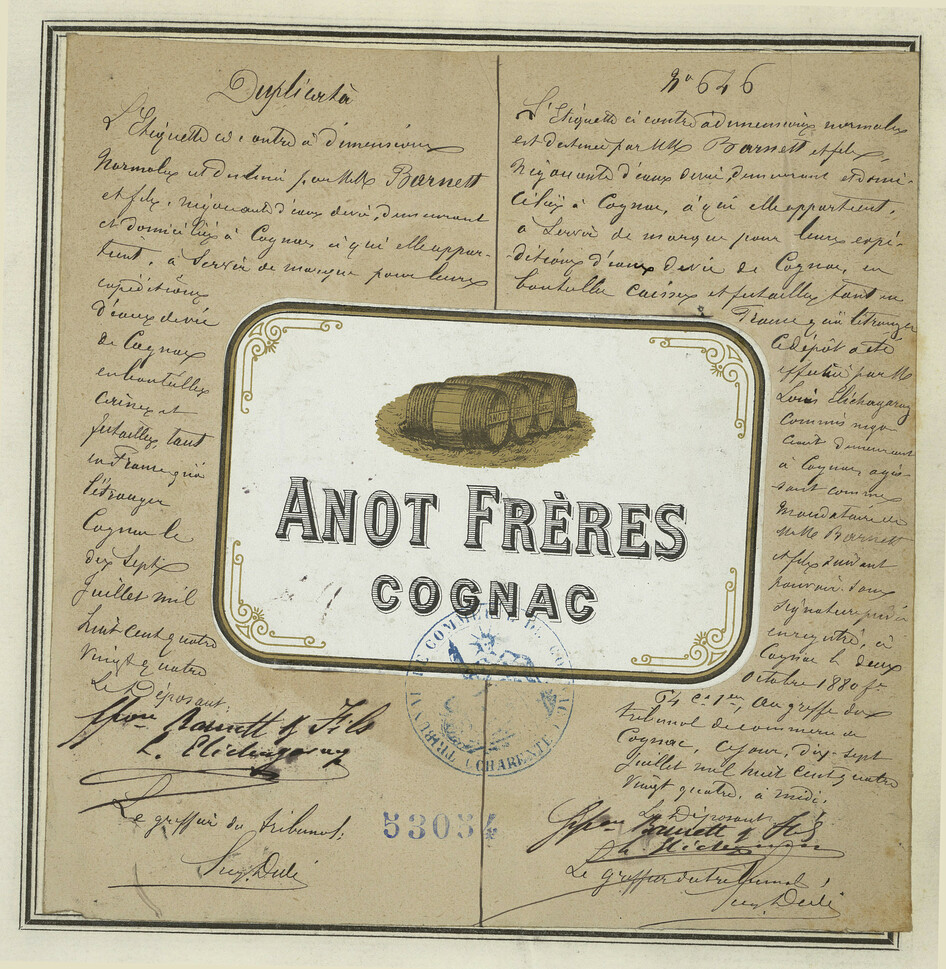 Duplicata
L'Etiquette ci contre à dimensions
Normales est destinée par MM Barnett
et fils, négociants d'eaux de vie, demeurant
et domiciliés à Cognac, à qui elle appar-
tient, à Servir de marque pour leurs
expéditions
d'eaux de vie
de Cognac
en bouteilles
caisses et
futailles tant
en France qu'à
l'étranger
Cognac le
dix Sept
Juillet mil
huit cent quatre
Vingt quatre
Le Déposant:
Ppon Barnett & Fils
L. Elichagaray
Le greffier du tribunal:
No 646
L'Etiquette ci contre à dimensions normales
est destinée par MM Barnett et fils,
Négociants d'eaux de vie, demeurant et domi-
ciliés à Cognac, à qui elle appartient,
à Servir de marque pour leurs expé-
ditions d'eaux de vie de Cognac, en
bouteilles caisses et futailles tant en
France qu'à l'étranger
Ce dépôt a été
effectué par M
Louis Elichagaray
commis négo-
ciant demeurant
à Cognac, agis-
sant comme
Mandataire de
MM Barnett
et fils suivant
pouvoir sous
signature privée
enregistré, à
Cognac le deux
Octobre 1880 fo
64 c 1er, au greffe du
tribunal de commerce de
Cognac, ce jour, dix-sept
Juillet mil huit cent quatre
Vingt quatre, à midi.
Le Déposant
Ppon Barnett & Fils
L. Elichagaray
Le greffier du tribunal,
ANOT FRÈRES
COGNAC
TRIBUNAL DE COMMERCE DE COGNAC
(CHARENTE)
53054